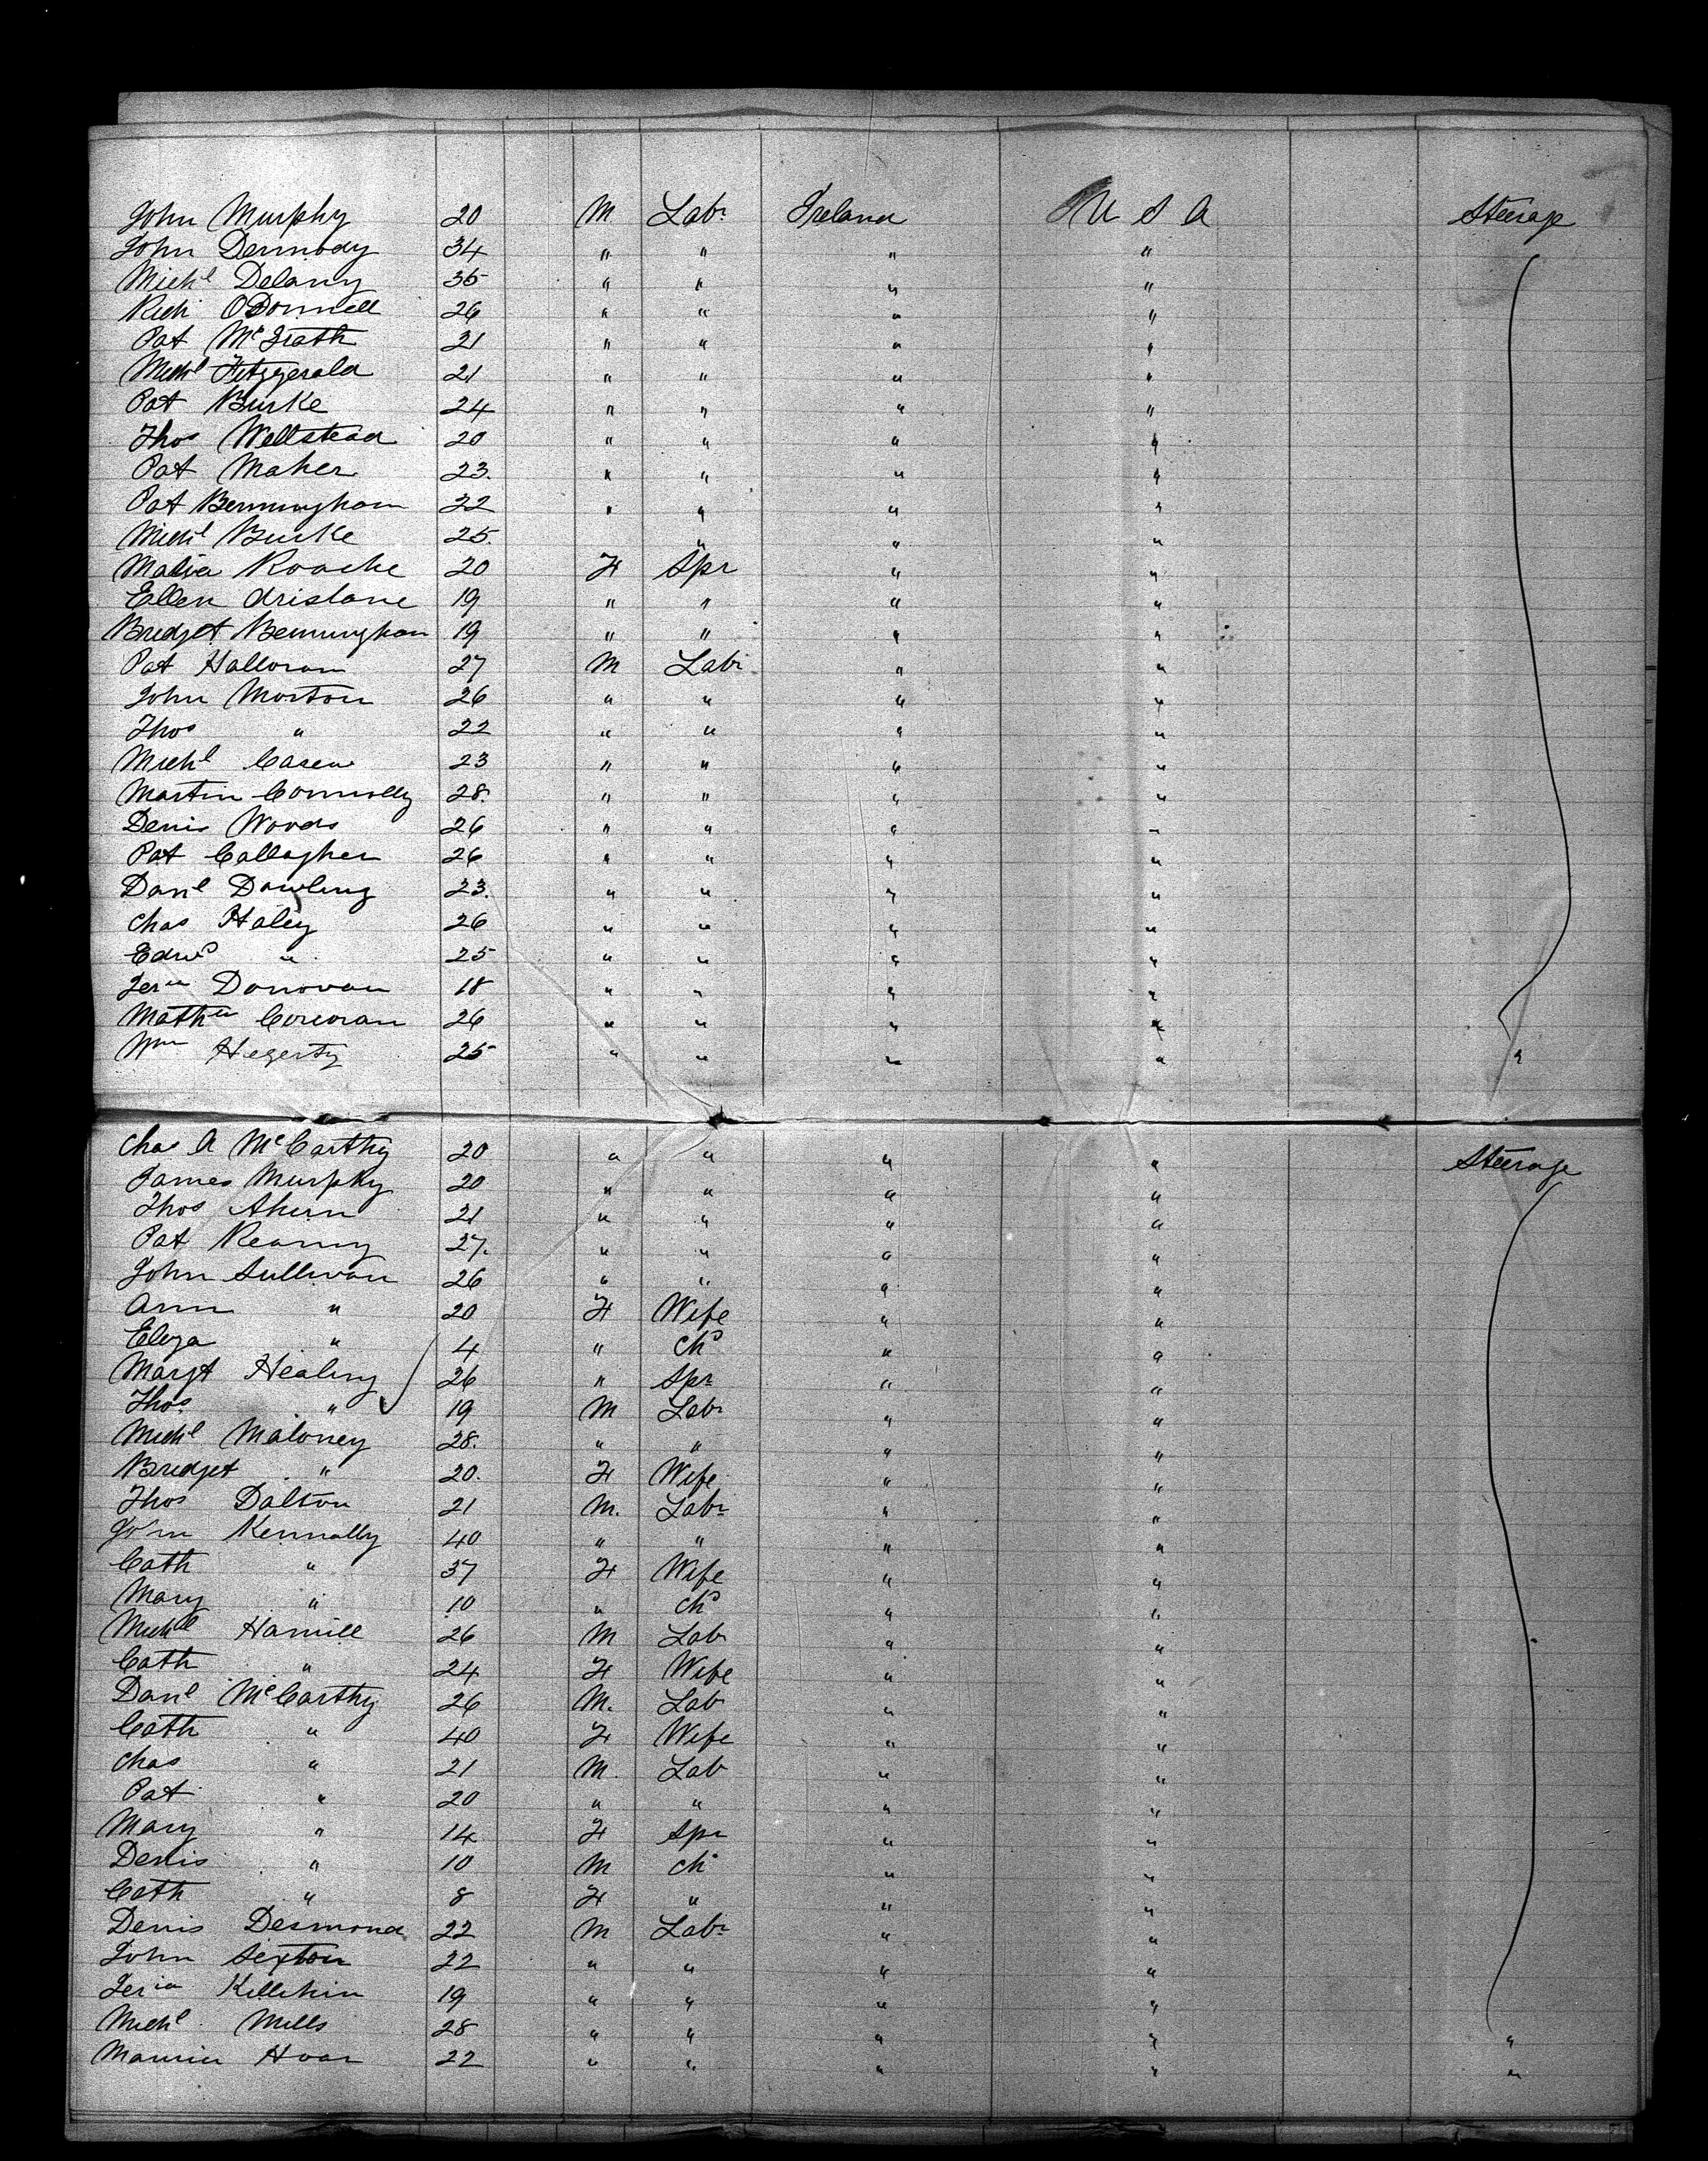 John Murphy 20 M Labr Ireland U S A Steerage
John Dermody 34 " " " "
Michl Delany 35 " " " "
Richd O'Donnell 26 " " " "
Pat McGrath 21 " " " "
Michl Fitzgerald 21 " " " "
Pat Burke 24 " " " "
Thos Wellstead 20 " " " "
Pat Maher 23. " " " "
Pat Bermingham 22 " " " "
Michl Burke 25. " " "
Maria Roache 20 F Spr " "
Ellen 19 " " " "
Bridget Bermingham 19 " " " "
Pat Halloran 27 M Labr " "
John Morton 26 " " " "
Thos " 22 " " " "
Michl Carew 23 " " " "
Martin Connolly 28. " " " "
Denis Woods 26 " " " "
Pat Gallagher 26 " " " "
Danl Dowling 23. " " " "
Chas Haley 26 " " " "
Edwd " 25 " " " "
Jera Donovan 18 " " " "
Mathew Corcoran 26 " " " "
Wm Hegerty 25 " " " " "
Chas A McCarthy 20 " " " " Steerage
James Murphy 20 " " " "
Thos Ahern 21 " " " "
Pat Kearny 27. " " " "
John Sullivan 26 " " " "
Ann " 20 F Wife " "
Eliza " 4 " Chd " "
Margt Healing 26 " Spr " "
Thos " 19 M Labr " "
Michl Maloney 28. " " " "
Bridget " 20. F Wife " "
Thos Dalton 21 M. Labr " "
John Kennally 40 " " " "
Cath " 37 F Wife " "
Mary " 10 " Chd " "
Michl Hamill 26 M Lab " "
Cath " 24 F Wife " "
Danl McCarthy 26 M. Lab " "
Cath " 40 F Wife " "
Chas " 21 M. Lab " "
Pat " 20 " " " "
Mary " 14 F Spr " "
Denis " 10 M Ch " "
Cath " 8 F " " "
Denis Desmond 22 M Labr " "
John Sexton 22 " " " "
Jeria Killihin 19 " " " "
Michl Mills 28 " " " " "
Maurice Hoar 22 " " " " "